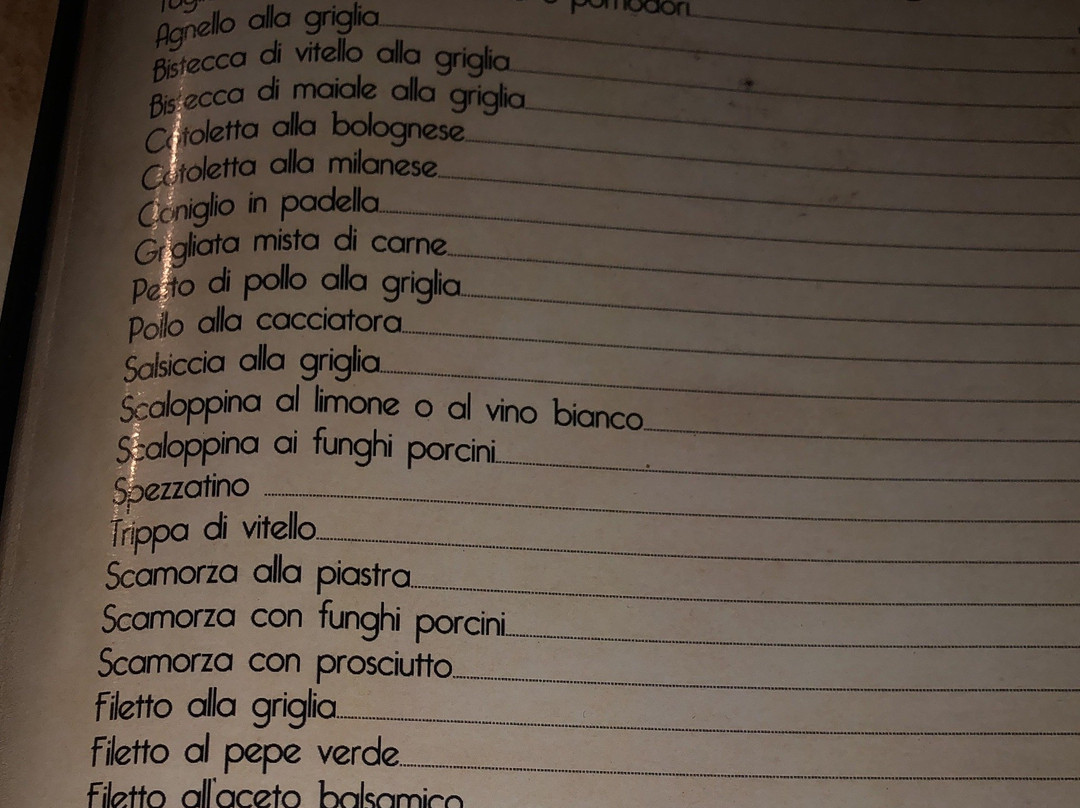 pomodori
Agnello alla griglia
Bistecca di vitello alla griglia
Bistecca di maiale alla griglia
Cotoletta alla bolognese
Cotoletta alla milanese
Coniglio in padella
Grigliata mista di carne
Petto di pollo alla griglia
Pollo alla cacciatora
Salsiccia alla griglia
Scaloppina al limone o al vino bianco
Scaloppina ai funghi porcini
Spezzatino
Trippa di vitello
Scamorza alla piastra
Scamorza con funghi porcini
Scamorza con prosciutto
Filetto alla griglia
Filetto al pepe verde
Filetto all'aceto balsamico